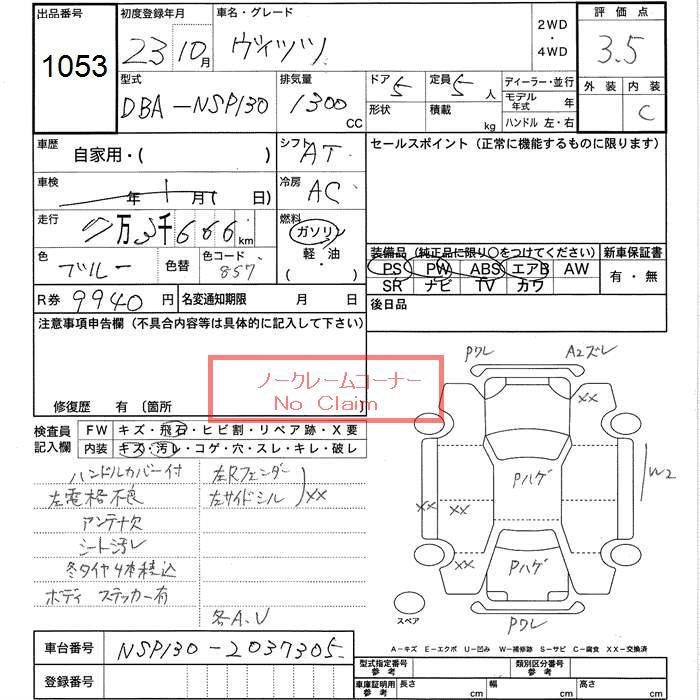 出品番号 初度登録年月 車名・グレード 2WD・4WD 評価点
1053 23 10月 ヴィッツ 3.5
型式 排気量 ドア 5 定員 5人 ディーラー・並行 外装 内装
DBA-NSP130 1300 CC 形状 積載 kg モデル年式 年 C
ハンドル 左・右
車歴 自家用・( ) シフト AT セールスポイント (正常に機能するものに限ります)
車検 年 1月(日) 冷房 AC
走行 7万3千666km 燃料 ガソリン
軽・油
( )
色 ブルー 色替 色コード 857
装備品 (純正品に限り○をつけてください) 新車保証書
PS PW ABS エアB AW 有・無
SR ナビ TV カワ
R券 9940円 名変通知期限 月 日 後日品
注意事項申告欄 (不具合内容等は具体的に記入して下さい)
ノークレームコーナー
No Claim
修復歴 有 〔箇所 〕
検査員記入欄 FW キズ・飛石・ヒビ割・リペア跡・X要
内装 キズ・汚レ・コゲ・穴・スレ・キレ・破レ
ハンドルカバー付 左Rフェンダー
左電格不良 左サイドシル XX
アンテナ欠
シート汚レ
冬タイヤ4本積込
ボディ ステッカー有
各A.U
Pワレ A2ズレ
XX
Pハゲ W2
XX XX
XX Pハゲ
スペア Pワレ
A-キズ E-エクボ U-凹み W-補修跡 S-サビ C-腐食 XX-交換済
車台番号 NSP130-2037305
登録番号
型式指定番号 参考 類別区分番号 参考
車庫証明用 参考 長さ cm 幅 cm 高さ cm